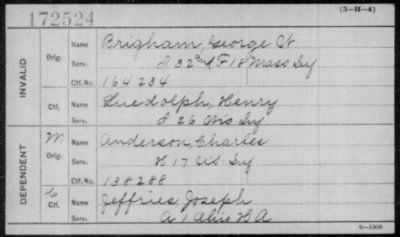 172524
(3-H-4)
INVALID
Orig.
Name Brigham, George W
Serv. I 32nd F 18 Mass Inf
Ctf. No. 164234
Ctf.
Name Luedolph, Henry
Serv. I 26 Wis Inf
DEPENDENT
M
Orig.
Name Anderson, Charles
Serv. H 17 US Inf
Ctf. No. 138288
C
Ctf.
Name Jeffries, Joseph
Serv. A 1 Ohio H A